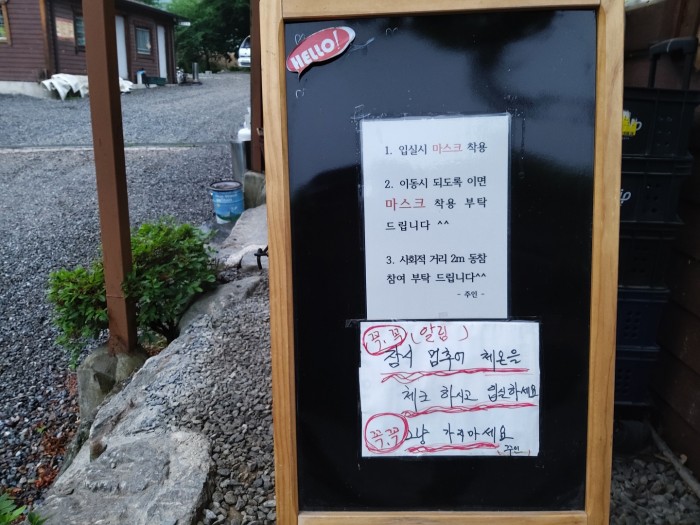 HELLO!
1. 입실시 마스크 착용
2. 이동시 되도록 이면
마스크 착용 부탁
드립니다 ^^
3. 사회적 거리 2m 동참
참여 부탁 드립니다^^
- 주인 -
꼭, 꼭 (알림)
잠시 멈추어 체온을
체크 하시고 입실하세요
꼭, 꼭 그냥 가지마세요
주인